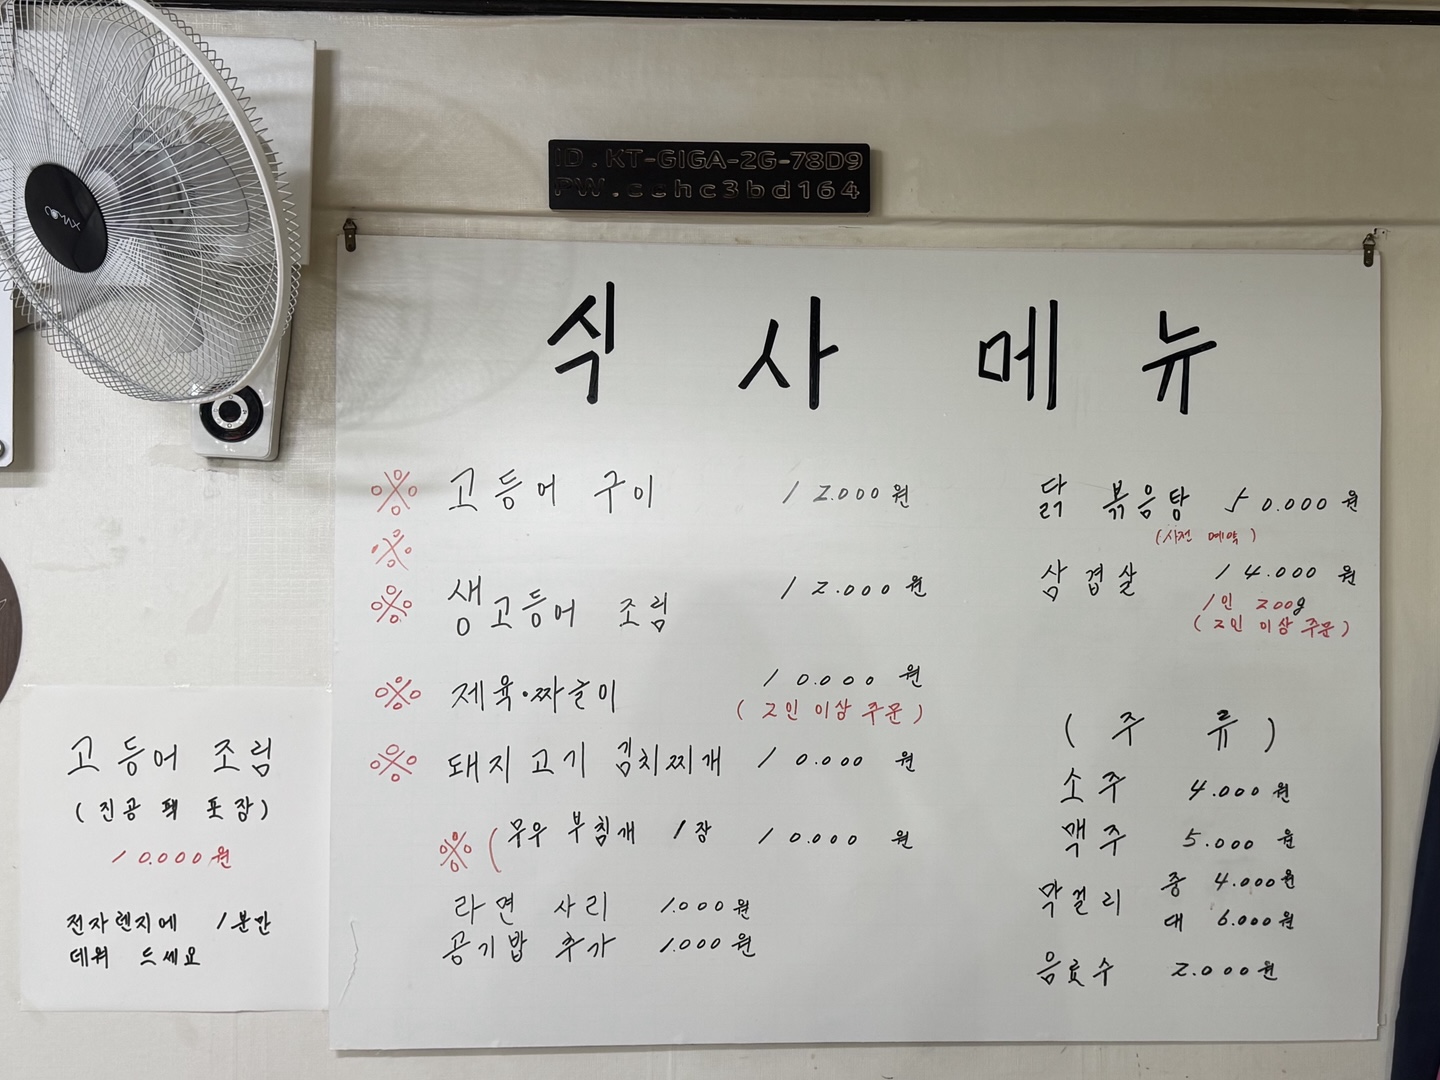 COMAX
ID.KT-GIGA-2G-78D9
PW.cchc3bd164
식 사 메 뉴
※ 고등어 구이 12.000원
※
※ 생고등어 조림 12.000원
※ 제육·짜글이 10.000원
(2인 이상 주문)
※ 돼지고기 김치찌개 10.000원
※( 무우 부침개 1장 10.000원
라면 사리 1.000원
공기밥 추가 1.000원
닭 볶음탕 50.000원
(사전 예약)
삼겹살 14.000원
1인 200g
(2인 이상 주문)
(주 류)
소주 4.000원
맥주 5.000원
막걸리 중 4.000원
대 6.000원
음료수 2.000원
고등어 조림
(진공 팩 포장)
10.000원
전자렌지에 1분만
데워 드세요